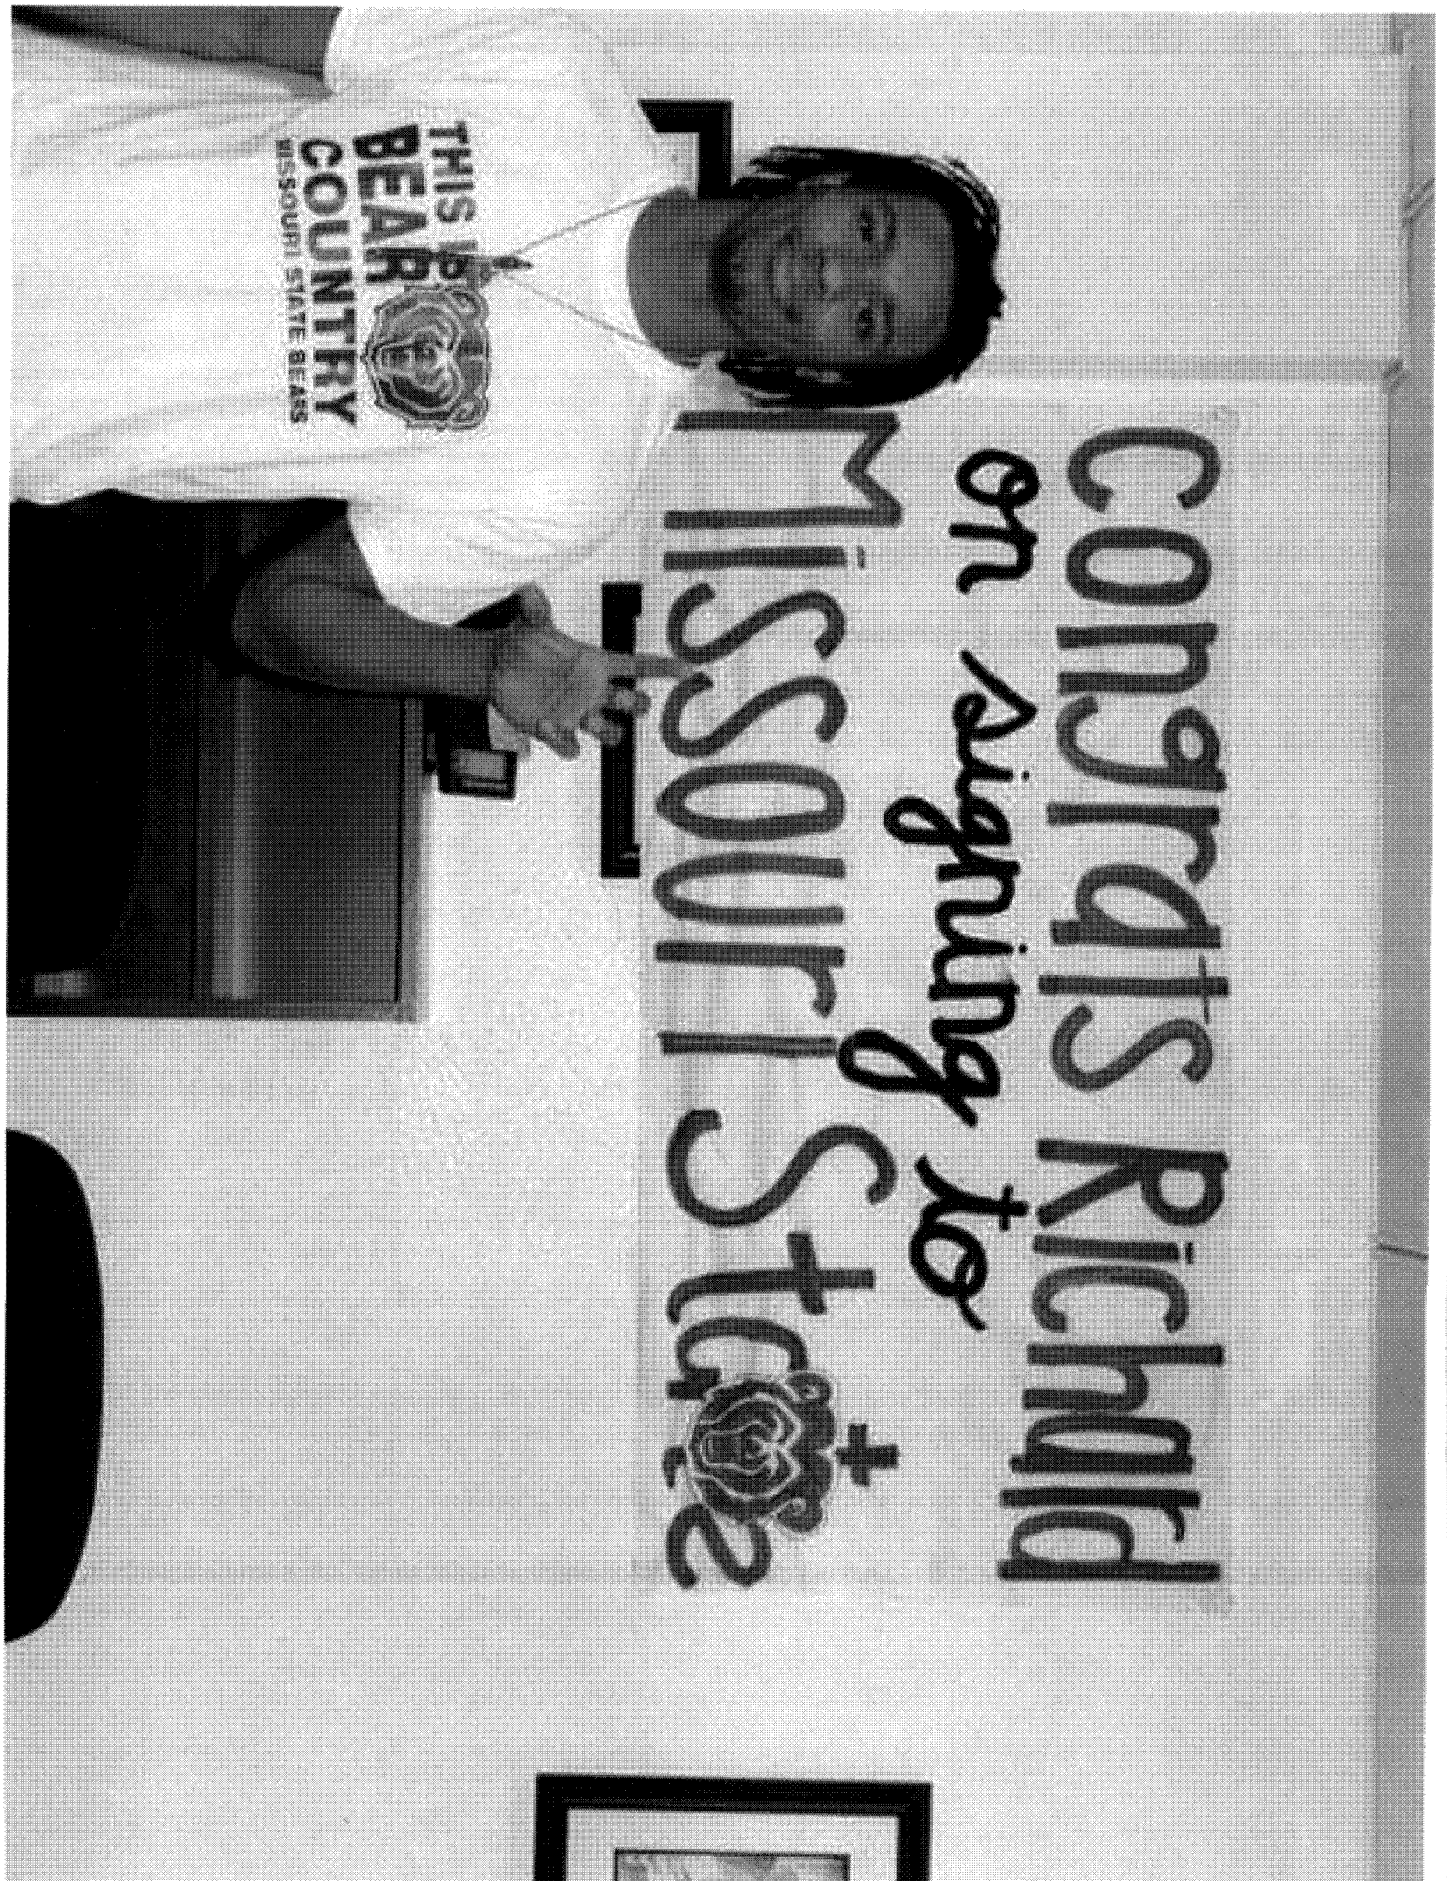 congrats Richard
on signing to
Missouri State
THIS IS
BEAR
COUNTRY
MISSOURI STATE BEARS